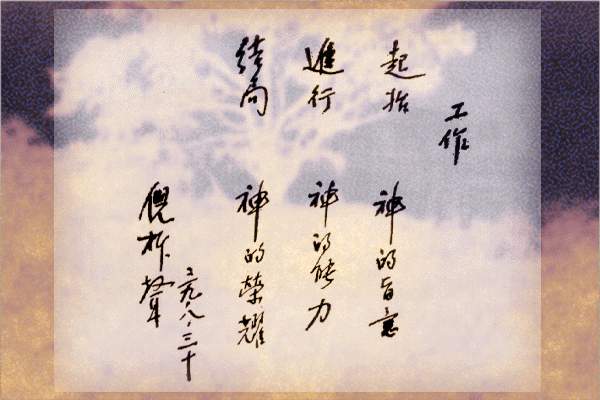 工作
起始 神的旨意
進行 神的能力
結局 神的榮耀
二九、八、三十
倪柝聲